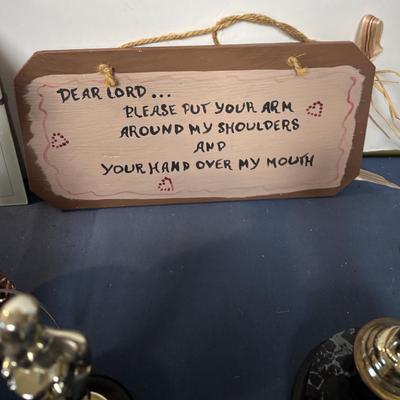 DEAR LORD...
PLEASE PUT YOUR ARM
AROUND MY SHOULDERS
AND
YOUR HAND OVER MY MOUTH